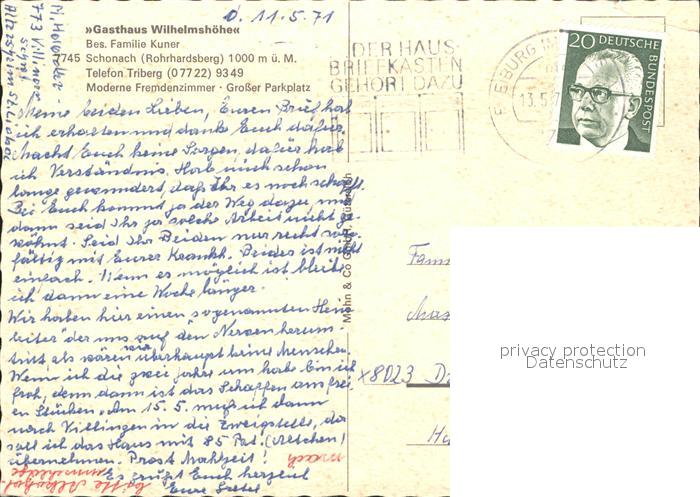 D. 11.5.71
»Gasthaus Wilhelmshöhe«
Bes. Familie Kuner
7745 Schonach (Rohrhardsberg) 1000 m ü. M.
Telefon Triberg (0 77 22) 93 49
Moderne Fremdenzimmer · Großer Parkplatz
773 Villingen
Meine beiden Lieben, Euren Brief hab
ich erhalten und danke Euch dafür.
Macht Euch keine Sorgen, dafür hab
ich Verständnis. Hab mich schon
lange gewundert, daß Ihr es noch schafft.
Bei Euch kommt ja der Weg dazu, und
dann seid Ihr ja solche Arbeit nicht ge-
wöhnt. Seid Ihr Beiden nur recht sorg-
fältig mit Eurer Krankh. Beides ist nicht
einfach. Wenn es möglich ist bleibt
ich dann eine Woche länger.
Wir haben hier einen sogenannten Heim
leiter der uns auf den Nerven herum-
tritt, als wären wir überhaupt keine Menschen.
Wenn ich die zwei Jahre um hab bin ich
froh, denn dann ist das Schaffen am frei-
en Stücken. Am 15.5. muß ich dann
nach Villingen in die Zweigstelle, da
soll ich das Haus mit 85 Pat.
übernehmen. Prost Mahlzeit!
Es grüßt Euch herzlich
Eure
bitte
DER HAUS-
BRIEFKASTEN
GEHÖRT DAZU
13.5.
20 DEUTSCHE
BUNDESPOST
Mohn & Co GmbH,
x8023
privacy protection
Datenschutz